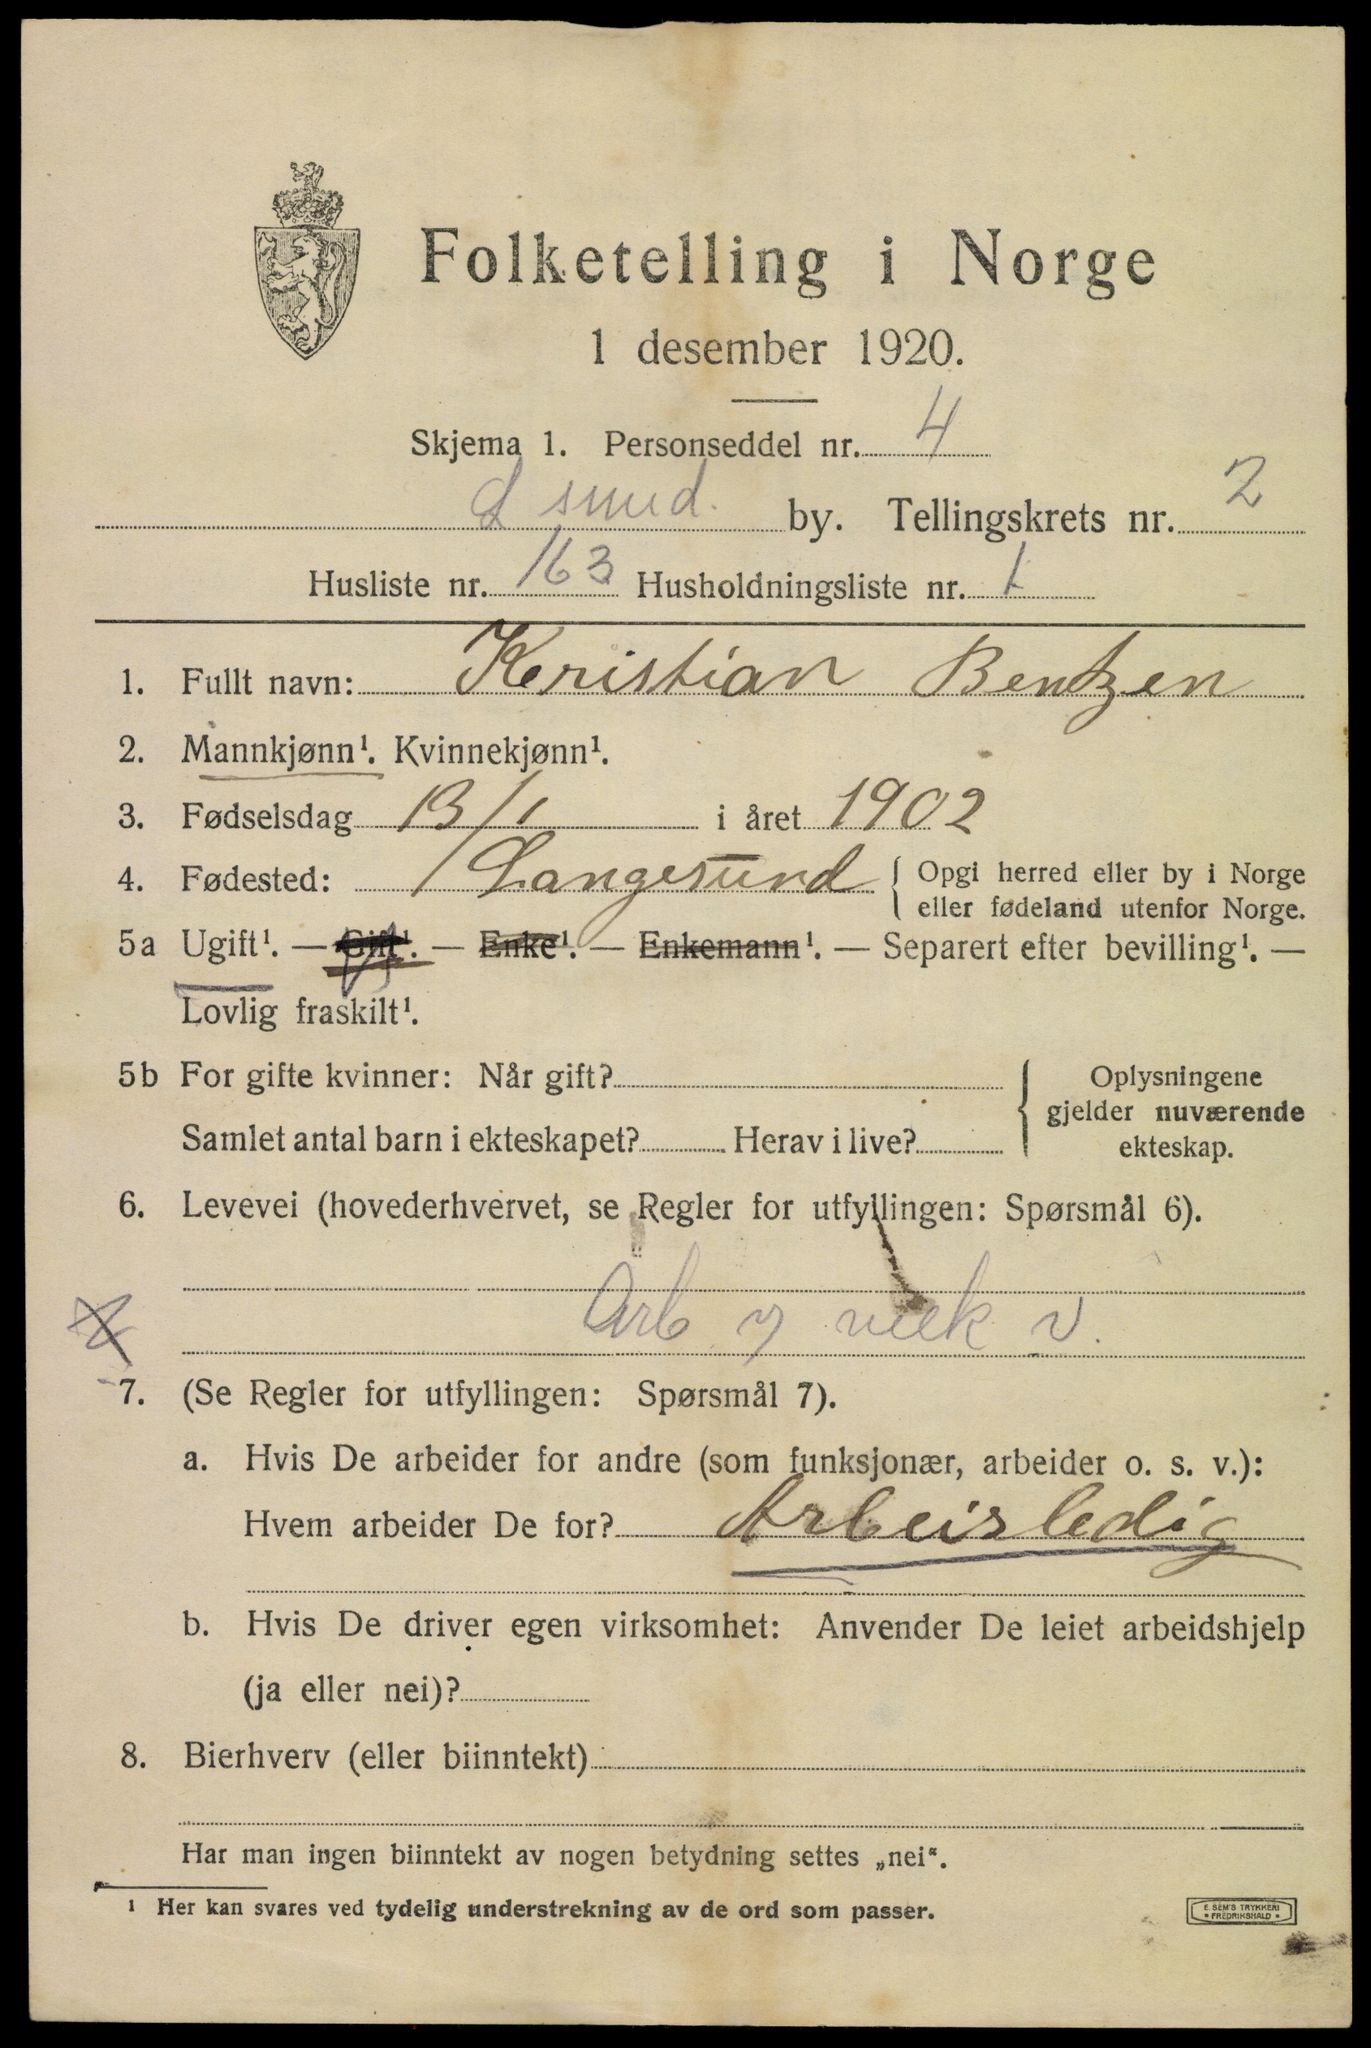 Folketelling i Norge
1 desember 1920.
Skjema 1. Personseddel nr. 4
L sund. by. Tellingskrets nr. 2
Husliste nr. 163 Husholdningsliste nr. 1
1. Fullt navn: Kristian Bentzen
2. Mannkjønn¹. Kvinnekjønn¹.
3. Fødselsdag 13/1 i året 1902
4. Fødested: Langesund { Opgi herred eller by i Norge
eller fødeland utenfor Norge.
5a Ugift¹. — Gift¹. — Enke¹. — Enkemann¹. — Separert efter bevilling¹. —
Lovlig fraskilt¹.
5b For gifte kvinner: Når gift?
Samlet antal barn i ekteskapet? Herav i live?
Oplysningene
gjelder nuværende
ekteskap.
6. Levevei (hovederhvervet, se Regler for utfyllingen: Spørsmål 6).
Arb. v.
7. (Se Regler for utfyllingen: Spørsmål 7).
a. Hvis De arbeider for andre (som funksjonær, arbeider o. s. v.):
Hvem arbeider De for? Arbeisledig
b. Hvis De driver egen virksomhet: Anvender De leiet arbeidshjelp
(ja eller nei)?
8. Bierhverv (eller biinntekt)
Har man ingen biinntekt av nogen betydning settes „nei".
¹ Her kan svares ved tydelig understrekning av de ord som passer.
E. SEM'S TRYKKERI
* FREDRIKSHALD *